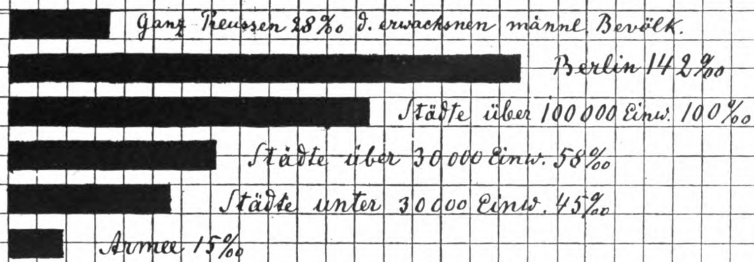 Ganz Preussen 28‰ d. erwachsnen männl. Bevölk.
Berlin 142‰
Städte über 100000 Einw. 100‰
Städte über 30000 Einw. 58‰
Städte unter 30000 Einw. 45‰
Armee 15‰